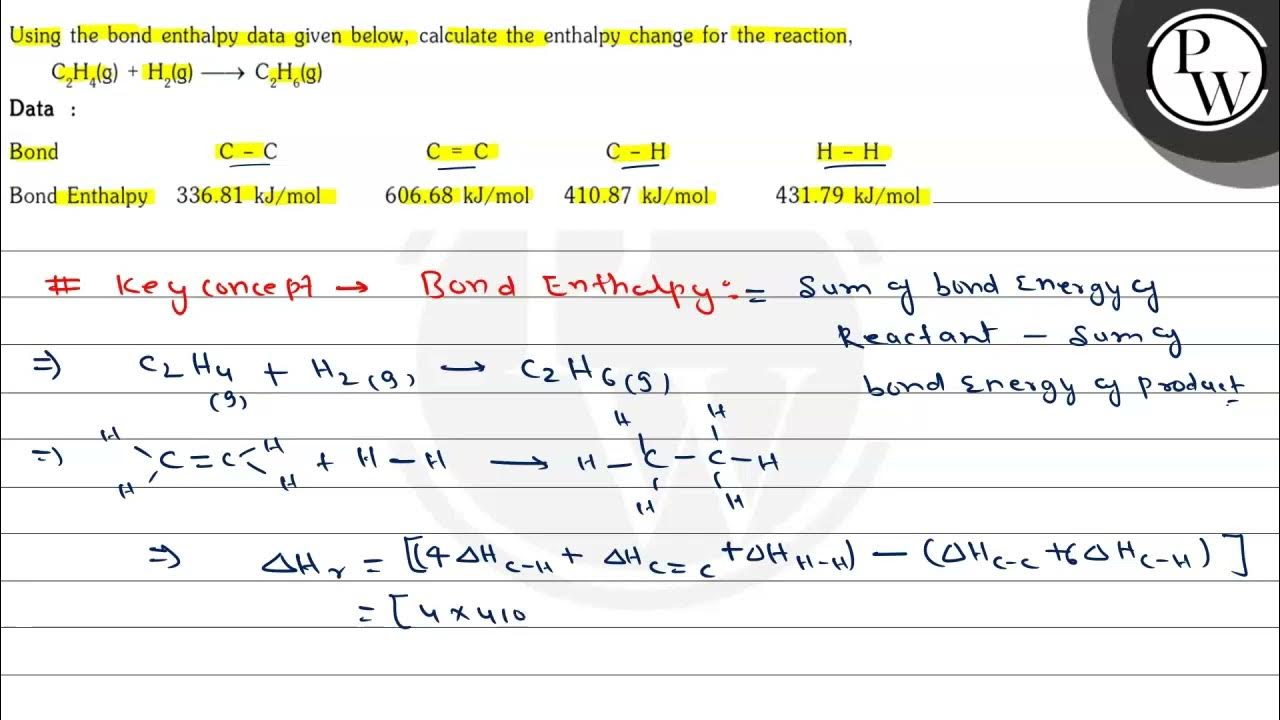 Using the bond enthalpy data given below, calculate the enthalpy change for the reaction,
C₂H₄(g) + H₂(g) ⟶ C₂H₆(g)
Data :
Bond C – C C = C C – H H – H
Bond Enthalpy 336.81 kJ/mol 606.68 kJ/mol 410.87 kJ/mol 431.79 kJ/mol
P
W
# Key concept → Bond Enthalpy :- = Sum of bond Energy of
Reactant – Sum of
bond Energy of product
⇒ C₂H₄ (g) + H₂(g) ⟶ C₂H₆(g)
H H H H
⇒ C = C + H – H ⟶ H – C – C – H
H H H H
⇒ ΔHr = [(4ΔH C–H + ΔH C=C + ΔH H–H) – (ΔH C–C + 6ΔH C–H)]
= [4 × 410